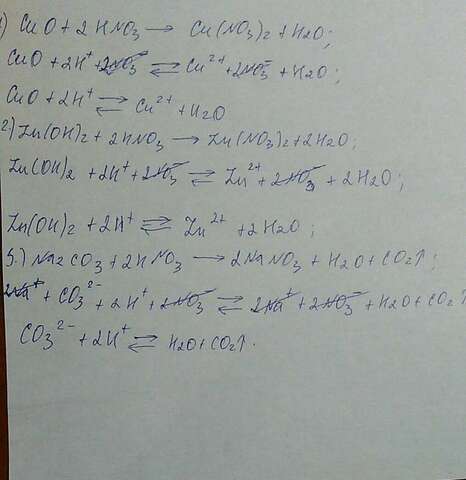 1) CuO + 2HNO3 → Cu(NO3)2 + H2O;
CuO + 2H⁺ + 2NO3⁻ ⇌ Cu²⁺ + 2NO3⁻ + H2O;
CuO + 2H⁺ ⇌ Cu²⁺ + H2O
2.) Zn(OH)2 + 2HNO3 → Zn(NO3)2 + 2H2O;
Zn(OH)2 + 2H⁺ + 2NO3⁻ ⇌ Zn²⁺ + 2NO3⁻ + 2H2O;
Zn(OH)2 + 2H⁺ ⇌ Zn²⁺ + 2H2O;
3.) Na2CO3 + 2HNO3 → 2NaNO3 + H2O + CO2↑;
2Na⁺ + CO3²⁻ + 2H⁺ + 2NO3⁻ ⇌ 2Na⁺ + 2NO3⁻ + H2O + CO2↑
CO3²⁻ + 2H⁺ ⇌ H2O + CO2↑.